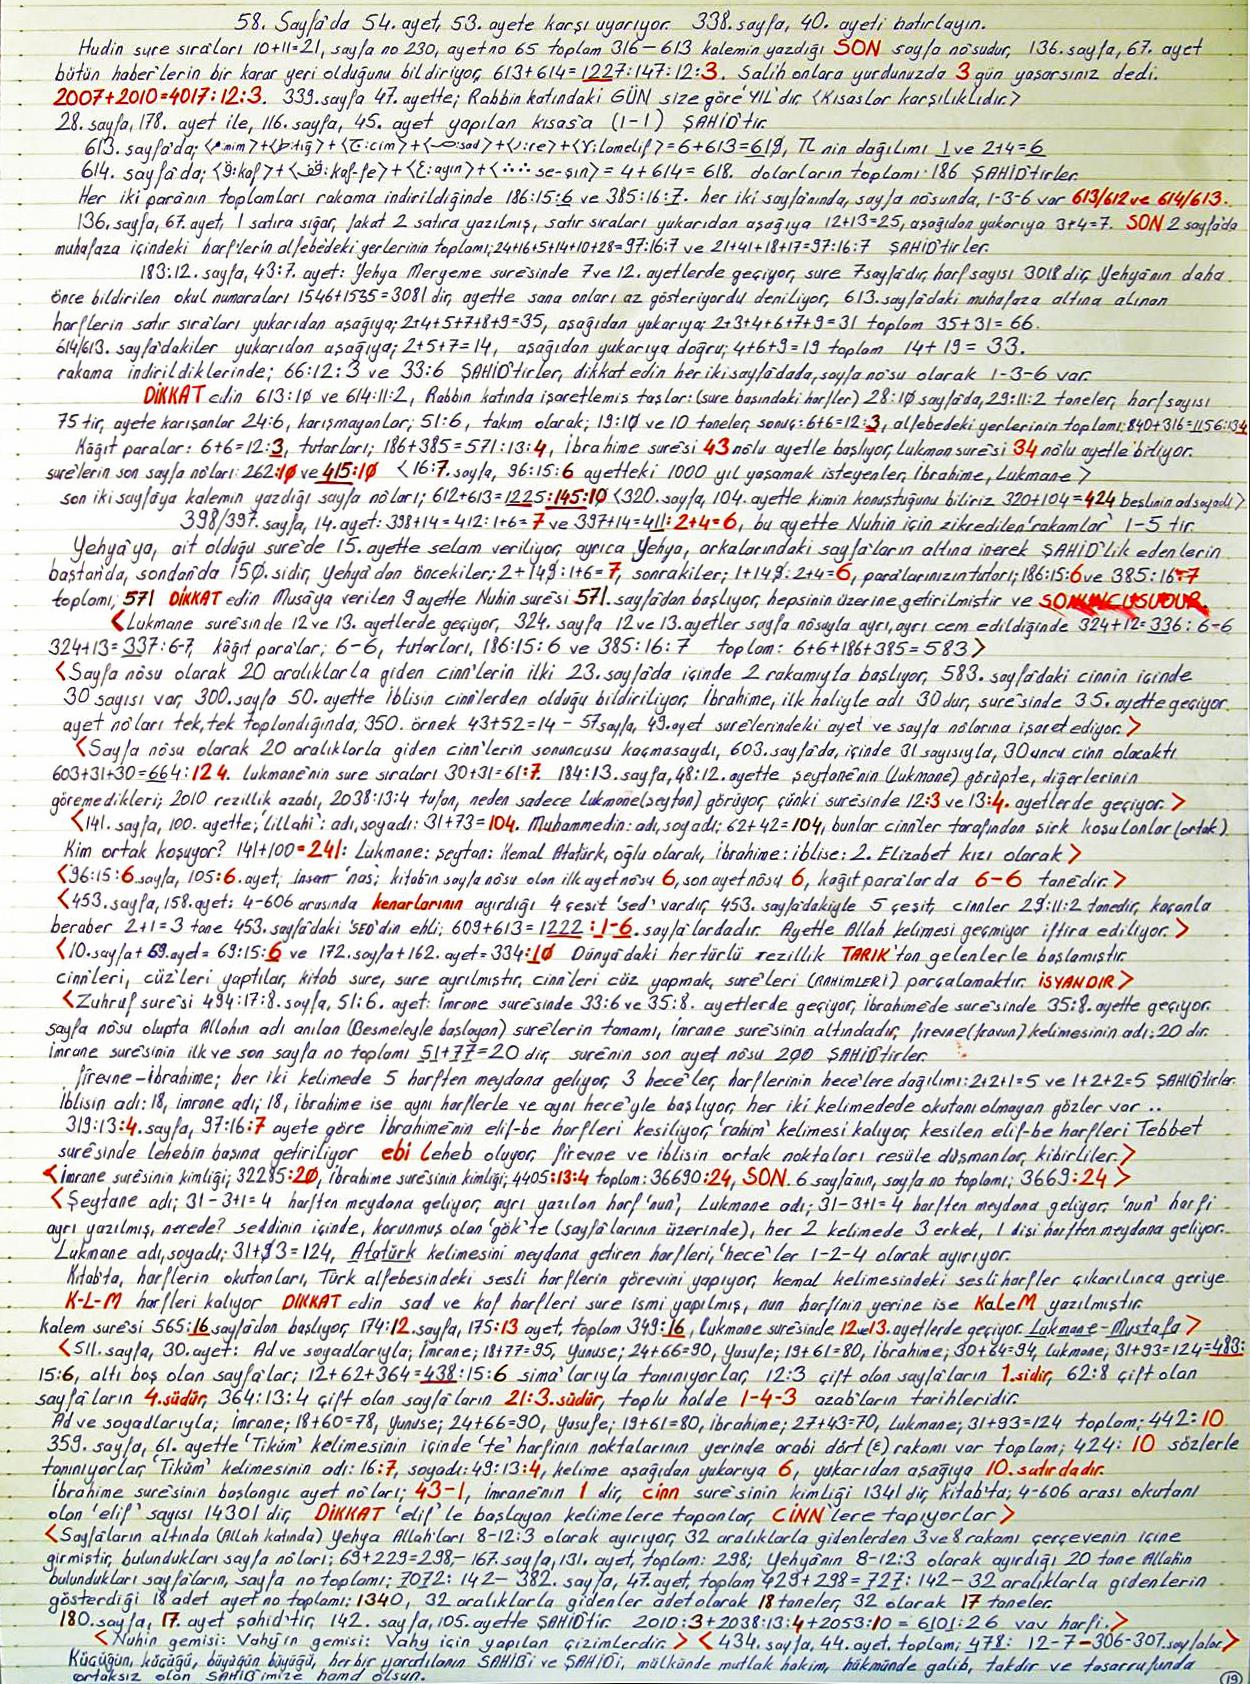 58. Sayfa'da 54. ayet, 53. ayete karşı uyarıyor. 338. sayfa, 40. ayeti hatırlayın.
Hudin sure sıraları 10+11=21, sayfa no 230, ayet no 65 toplam 316-613 kalemin yazdığı SON sayfa nosudur, 136. sayfa, 67. ayet
bütün haber'lerin bir karar yeri olduğunu bildiriyor, 613+614=1227:147:12:3. Salih onlara yurdunuzda 3 gün yaşarsınız dedi.
2007+2010=4017:12:3. 339. sayfa 47. ayette; Rabbin katındaki GÜN size göre YIL'dır, <Kısaslar karşılıklıdır>
28. sayfa, 178. ayet ile, 116. sayfa, 45. ayet yapılan kısas'a (1-1) ŞAHİD'tir.
613. sayfa'da; +<J:re>+<Y:lamelif>=6+613=619, TL nin dağılımı 1 ve 2+4=6
614. sayfa'da; =4+614=618. dolarların toplamı 186 ŞAHİD'tirler.
Her iki para'nın toplamları rakama indirildiğinde 186:15:6 ve 385:16:7. her iki sayfa'nında, sayfa no'sunda, 1-3-6 var 613/612 ve 614/613.
136. sayfa, 67. ayet, 1 satıra sığar, fakat 2 satıra yazılmış, satır sıraları yukarıdan aşağıya 12+13=25, aşağıdan yukarıya 3+4=7. SON 2 sayfa'da
muhafaza içindeki harf'lerin alfebe'deki yerlerinin toplamı; 24+16+5+14+10+28=97:16:7 ve 21+41+18+17=97:16:7 ŞAHİD'tirler.
183:12. sayfa, 43:7. ayet: Yehya Meryeme suresi'nde 7 ve 12. ayetlerde geçiyor, sure 7 sayfa'dır, harf sayısı 3018 dir, Yehya'nın daha
önce bildirilen okul numaraları 1546+1535=3081 dir, ayette sana onları az gösteriyordu deniliyor, 613. sayfa'daki muhafaza altına alınan
harflerin satır sıra'ları yukarıdan aşağıya; 2+4+5+7+8+9=35, aşağıdan yukarıya; 2+3+4+6+7+9=31 toplam 35+31=66.
614/613. sayfa'dakiler yukarıdan aşağıya; 2+5+7=14, aşağıdan yukarıya doğru; 4+6+9=19 toplam 14+19=33.
rakama indirildiklerinde; 66:12:3 ve 33:6 ŞAHİD'tirler, dikkat edin her iki sayfa'dada, sayfa no'su olarak 1-3-6 var.
DİKKAT edin 613:10 ve 614:11:2, Rabbin katında işaretlemiş taşlar: (sure başındaki harfler) 28:10 sayfa'da, 29:11:2 taneler, harf sayısı
75 tir, ayete karışanlar 24:6, karışmayanlar; 51:6, takım olarak; 19:10 ve 10 taneler, sonuç: 6+6=12:3, alfebedeki yerlerinin toplamı; 840+316=1156:13:4
Kâğıt paralar: 6+6=12:3, tutarları; 186+385=571:13:4, İbrahime sure'si 43 no'lu ayetle başlıyor, Lukman suresi 34 no'lu ayetle bitiyor.
sure'lerin son sayfa no'ları: 262:10 ve 415:10 <16:7. sayfa, 96:15:6 ayetteki 1000 yıl yaşamak isteyenler, İbrahime, Lukmane>
son iki sayfa'ya kalemin yazdığı sayfa no'ları; 612+613=1225:145:10 <320. sayfa, 104. ayette kimin konuştuğunu biliriz 320+104=424 beslinin ad soyadı>
398/397. sayfa, 14. ayet: 398+14=412:1+6=7 ve 397+14=411:2+4=6, bu ayette Nuhin için zikredilen 'rakamlar' 1-5 tir.
Yehya'ya, ait olduğu sure'de 15. ayette selam veriliyor, ayrıca Yehya, arkalarındaki sayfa'ların altına inerek ŞAHİD'lik edenlerin
baştan'da, sondan'da 150. sidir, Yehya'dan öncekiler; 2+149:1+6=7, sonrakiler; 1+149:2+4=6, paralarınızın tutarı; 186:15:6 ve 385:16:7
toplamı; 571 DİKKAT edin Musa'ya verilen 9 ayette Nuhin sure'si 571. sayfa'dan başlıyor, hepsinin üzerine getirilmiştir ve SONUNCUSUDUR.
<Lukmane sure'sinde 12 ve 13. ayetlerde geçiyor, 324. sayfa 12 ve 13. ayetler sayfa no'suyla ayrı, ayrı cem edildiğinde 324+12=336:6-6
324+13=337:6-7, kâğıt para'lar; 6-6, tutarları, 186:15:6 ve 385:16:7 toplam: 6+6+186+385=583>
<Sayfa no'su olarak 20 aralıklarla giden cinn'lerin ilki 23. sayfa'da içinde 2 rakamıyla başlıyor, 583. sayfa'daki cinnin içinde
30 sayısı var, 300. sayfa 50. ayette İblisin cinn'lerden olduğu bildiriliyor, İbrahime, ilk haliyle adı 30 dur, sure'sinde 35. ayette geçiyor.
ayet no'ları tek, tek toplandığında; 350. örnek 43+52=14-57 sayfa, 49. ayet sure'lerindeki ayet ve sayfa no'larına işaret ediyor.>
<Sayfa no'su olarak 20 aralıklarla giden cinn'lerin sonuncusu kaçmasaydı, 603. sayfa'da, içinde 31 sayısıyla, 30 uncu cinn olacaktı
603+31+30=664:124. Lukmane'nin sure sıraları 30+31=61:7. 184:13. sayfa, 48:12. ayette şeytane'nin (Lukmane) görüpte, diğerlerinin
göremedikleri; 2010 rezillik azabı, 2038:13:4 tufan, neden sadece Lukmane(şeytan) görüyor, çünki sure'sinde 12:3 ve 13:4. ayetlerde geçiyor.>
<141. sayfa, 100. ayette; 'Lillahi': adı, soyadı: 31+73=104. Muhammedin: adı, soyadı; 62+42=104, bunlar cinn'ler tarafından şirk koşulanlar (ortak)
Kim ortak koşuyor? 141+100=241: Lukmane: şeytan: Kemal Atatürk, oğlu olarak, İbrahime: iblise: 2. Elizabet kızı olarak>
<96:15:6 sayfa, 105:6. ayet, insan 'nas; kitabın sayfa no'su olan ilk ayet no'su 6, son ayet no'su 6, kağıt para'lar da 6-6 tanedir.>
<453. sayfa, 158. ayet: 4-606 arasında kenarlarının ayırdığı 4 çeşit 'sed' vardır, 453. sayfa'dakiyle 5 çeşit, cinnler 29:11:2 tanedir, kaçanla
beraber 2+1=3 tane 453. sayfa'daki 'SED'din ehli; 609+613=1222:1-6. sayfa'lardadır. Ayette Allah kelimesi geçmiyor iftira ediliyor.>
<10. sayfa+59. ayet=69:15:6 ve 172. sayfa+162. ayet=334:10 Dünya'daki hertürlü rezillik TARIK'tan gelenlerle başlamıştır.
cinn'leri, cüz'leri yaptılar, kitab sure, sure ayrılmıştır, cinn'leri cüz yapmak, sure'leri (RAHİMLERİ) parçalamaktır. İSYANDIR>
<Zuhruf sure'si 494:17:8. sayfa, 51:6. ayet: İmrane sure'sinde 33:6 ve 35:8. ayetlerde geçiyor, İbrahime'de sure'sinde 35:8. ayette geçiyor.
sayfa no'su olupta Allahın adı anılan (Besmeleyle başlayan) sure'lerin tamamı, İmrane sure'sinin altındadır, firevne(fravun) kelimesinin adı: 20 dir.
İmrane sure'sinin ilk ve son sayfa no toplamı 51+77=20 dir, sure'nin son ayet no'su 200 ŞAHİD'tirler.
firevne-İbrahime; her iki kelimede 5 harften meydana geliyor, 3 hece'ler, harflerinin hece'lere dağılımı: 2+2+1=5 ve 1+2+2=5 ŞAHİD'tirler.
İblisin adı: 18, imrane adı; 18, ibrahime ise aynı harflerle ve aynı hece'yle başlıyor, her iki kelimedede okutanı olmayan gözler var..
319:13:4. sayfa, 97:16:7 ayete göre İbrahime'nin elif-be harfleri kesiliyor, 'rahim' kelimesi kalıyor, kesilen elif-be harfleri Tebbet
sure'sinde lehebin başına getiriliyor ebi Leheb oluyor, firevne ve iblisin ortak noktaları resule düşmanlar, kibirliler.>
<İmrane sure'sinin kimliği; 32285:20, İbrahime sure'sinin kimliği; 4405:13:4 toplam: 36690:24, SON. 6 sayfa'nın, sayfa no toplamı; 3669:24>
<Şeytane adı; 31-3+1=4 harften meydana geliyor, ayrı yazılan harf 'nun', Lukmane adı; 31-3+1=4 harften meydana geliyor, 'nun' harfi
ayrı yazılmış, nerede? seddinin içinde, korunmuş olan 'gök'te (sayfa'larının üzerinde), her 2 kelimede 3 erkek, 1 dişi harften meydana geliyor.
Lukmane adı, soyadı; 31+93=124, Atatürk kelimesini meydana getiren harfleri, 'hece'ler 1-2-4 olarak ayırıyor.
Kitab'ta, harflerin okutanları, Türk alfebesindeki sesli harflerin görevini yapıyor, kemal kelimesindeki sesli harfler çıkarılınca geriye
K-L-M harfleri kalıyor DİKKAT edin sad ve kaf harfleri sure ismi yapılmış, nun harfinin yerine ise KaLeM yazılmıştır.
Kalem sure'si 565:16 sayfa'dan başlıyor, 174:12. sayfa, 175:13 ayet, toplam 349:16, Lukmane sure'sinde 12 ve 13. ayetlerde geçiyor. Lukmane-Mustafa>
<511. sayfa, 30. ayet: Ad ve soyadlarıyla; İmrane; 18+77=95, Yunuse; 24+66=90, Yusufe; 19+61=80, İbrahime; 30+64=94, Lukmane; 31+93=124=483:
15:6, altı boş olan sayfa'lar; 12+62+364=438:15:6 sima'larıyla tanınıyorlar, 12:3 çift olan sayfa'ların 1.sidir, 62:8 çift olan
sayfa'ların 4.südür, 364:13:4 çift olan sayfa'ların 21:3.südür, toplu halde 1-4-3 azab'ların tarihleridir.
Ad ve soyadlarıyla; İmrane; 18+60=78, Yunuse; 24+66=90, Yusufe; 19+61=80, İbrahime; 27+43=70, Lukmane; 31+93=124 toplam; 442:10
359. sayfa, 61. ayette 'Tiküm' kelimesinin içinde 'te' harfinin noktalarının yerinde arabi dört (٤) rakamı var toplam; 424:10 sözlerle
tanınıyorlar, 'Tiküm' kelimesinin adı: 16:7, soyadı: 49:13:4, kelime aşağıdan yukarıya 6, yukarıdan aşağıya 10. satırdadır.
İbrahime sure'sinin başlangıç ayet no'ları; 43-1, İmrane'nin 1 dir, cinn sure'sinin kimliği 1341 dir, kitab'ta; 4-606 arası okutanı
olan 'elif' sayısı 14301 dir, DİKKAT 'elif'le başlayan kelimelere tapanlar, CİNN'lere tapıyorlar>
<Sayfa'ların altında (Allah katında) Yehya Allah'ları 8-12:3 olarak ayırıyor, 32 aralıklarla gidenlerden 3 ve 8 rakamı çerçevenin içine
girmiştir, bulundukları sayfa no'ları; 69+229=298-167. sayfa, 131. ayet, toplam: 298; Yehya'nın 8-12:3 olarak ayırdığı 20 tane Allahin
bulundukları sayfa'ların, sayfa no toplamı; 7072:142-382. sayfa, 47. ayet, toplam 429+298=727:142-32 aralıklarla gidenlerin
gösterdiği 18 adet ayet no toplamı; 1340, 32 aralıklarla gidenler adet olarak 18 taneler, 32 olarak 17 taneler.
180. sayfa, 17. ayet şahid'tir, 142. sayfa, 105. ayette ŞAHİD'tir. 2010:3+2038:13:4+2053:10=6101:26 vav harfi.>
<Nuhin gemisi: Vahy'in gemisi: Vahy için yapılan çizimlerdir.> <434. sayfa, 44. ayet, toplam; 478: 12-7-306-307. sayfalar>
Küçüğün, küçüğü, büyüğün büyüğü, her bir yaratılanın SAHİBİ ve ŞAHİDİ, mülkünde mutlak hakim, hükmünde galib, takdir ve tasarrufunda
ortaksız olan SAHİB'imize hamd olsun.
19